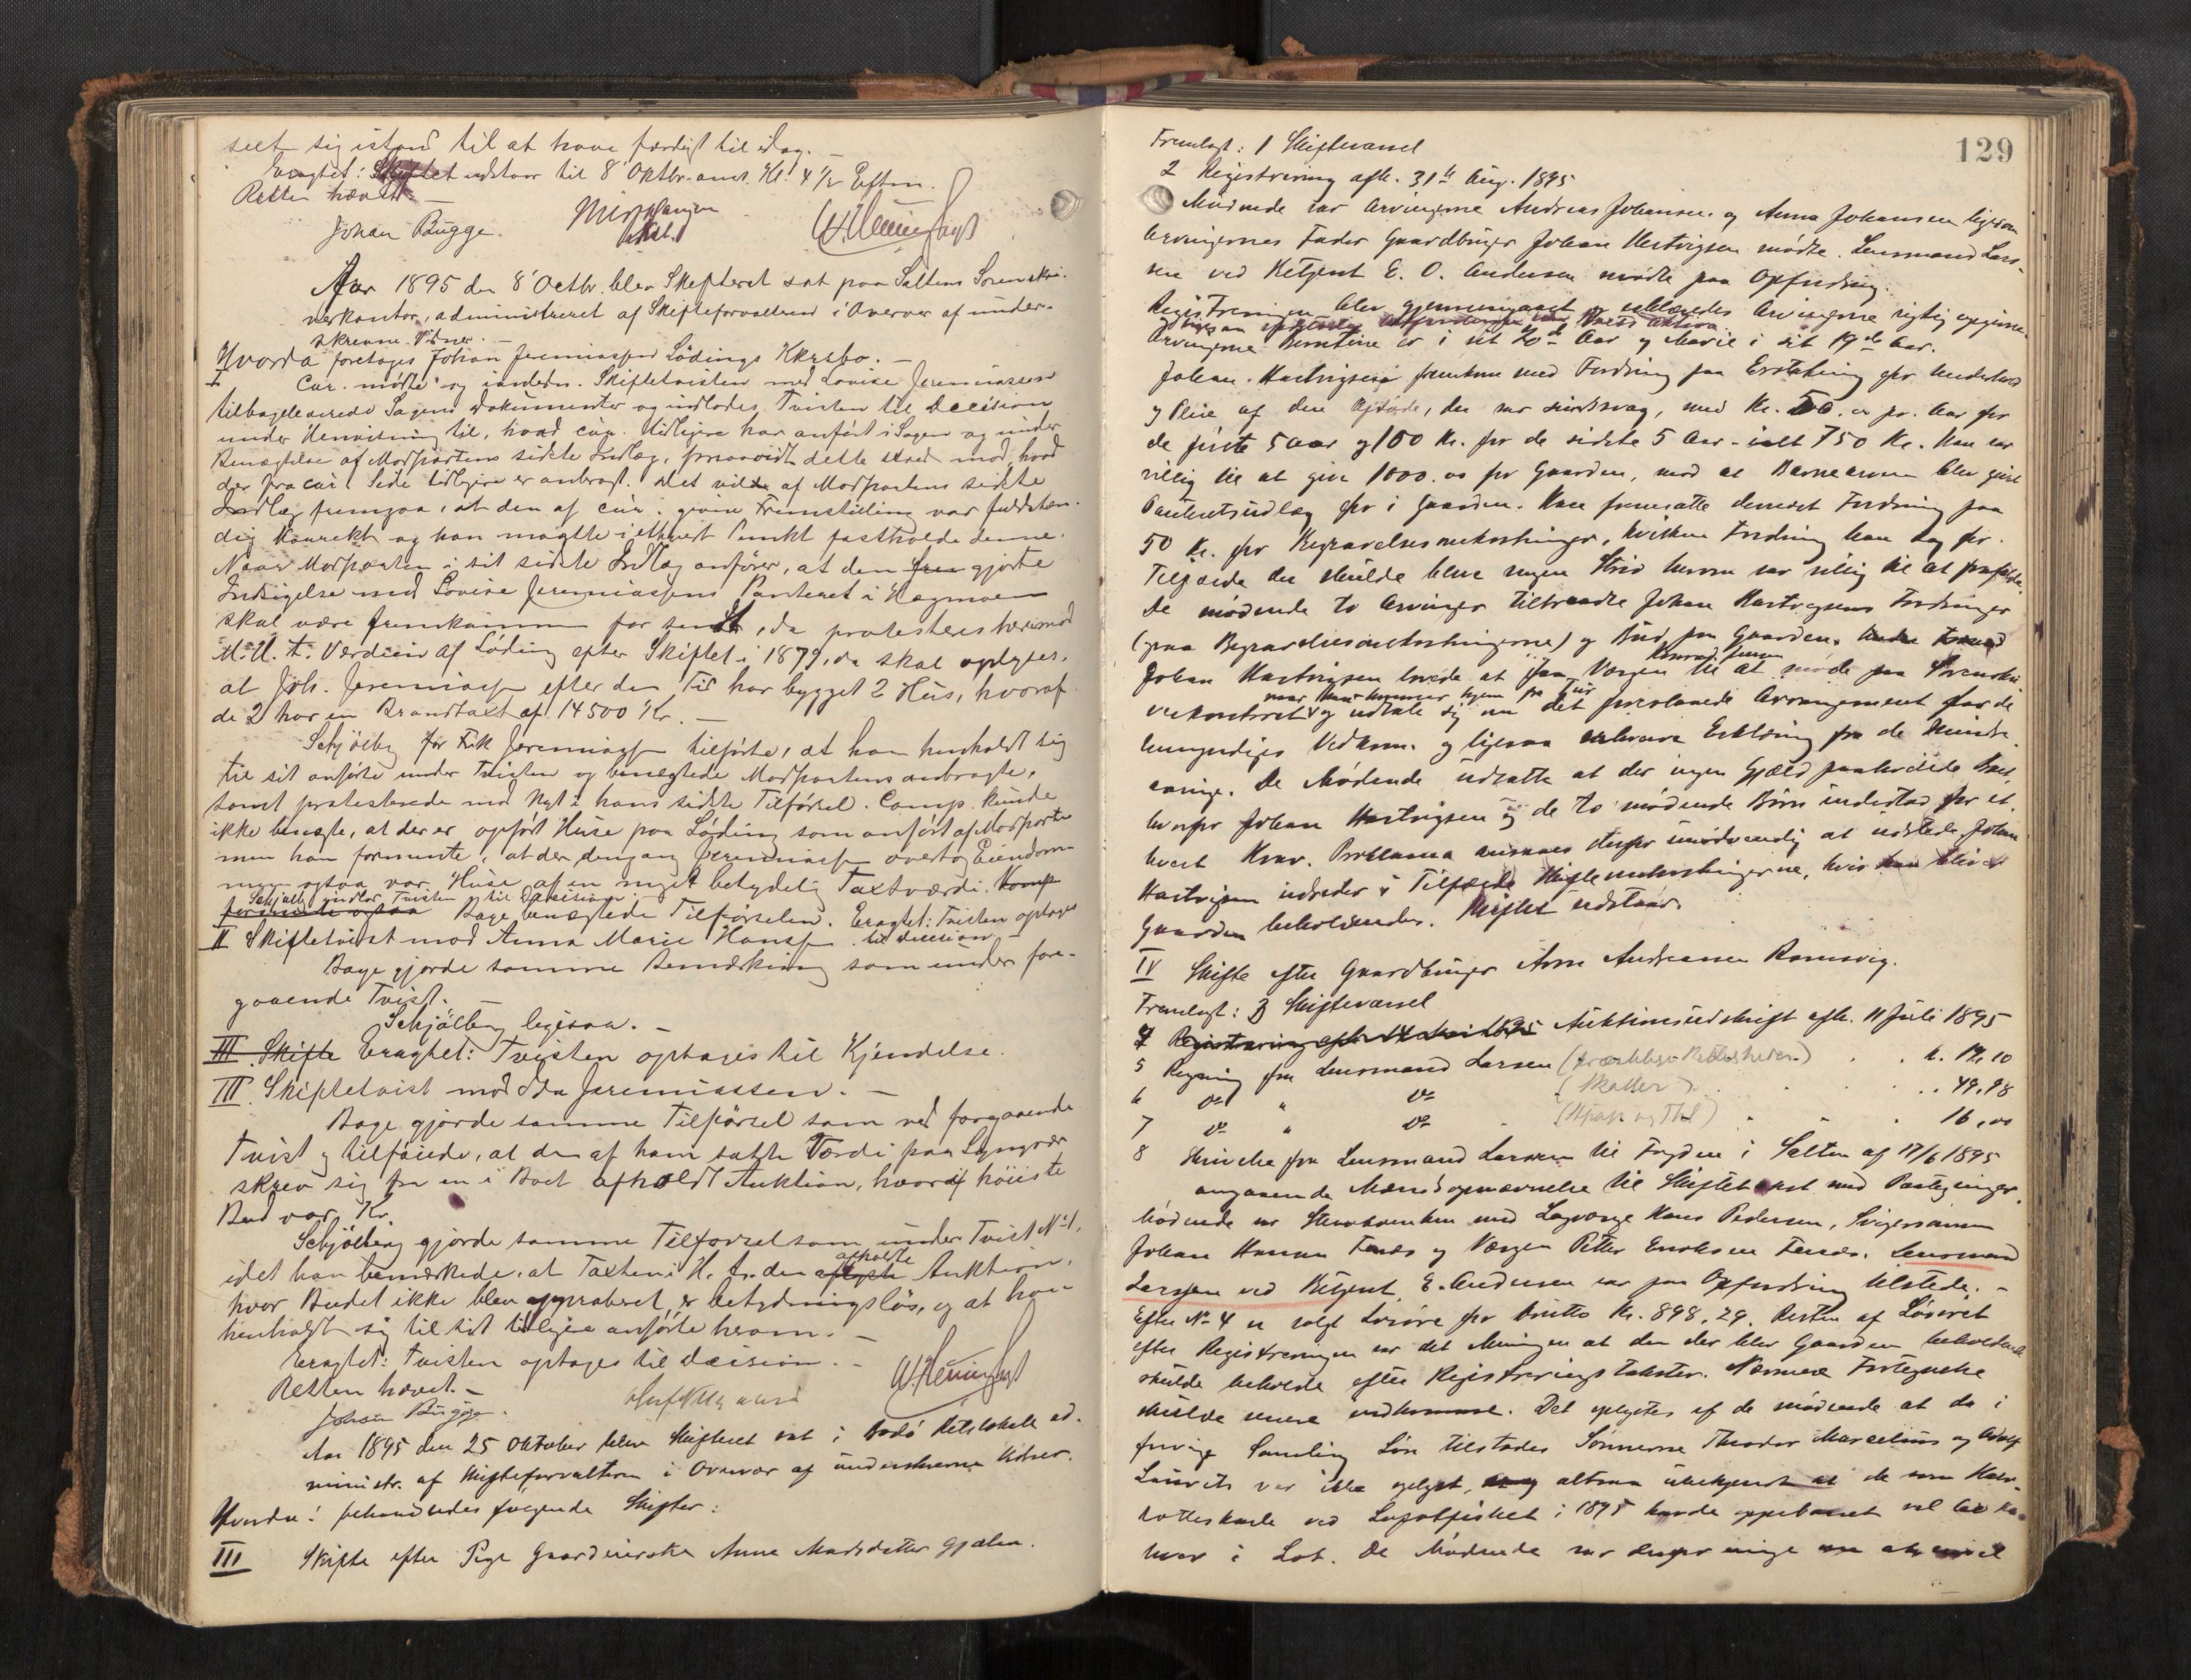 seet sig istand til at have færdigt til idag.
Eragtet: Skiftet udstaar til 8 Oktbr. Kl. 4 1/2 Eftm.
Retten hævet.
Johan Bugge.
Aar 1895 den 8 Octbr. blev Skifteret sat paa Saltens Sorenskri-
verkontor, administreret af Skifteforvalteren i Overvær af under-
skrevne Vidner. —
Hvorda foretages Johan Jeremiassen Lödings Kkrsbo. —
I Cur. mødte og Skiftetvisten med Lovise Jeremiassen
tilbageleverede Sagens Dokumenter og indlodes Tvisten til Decision
under Henvisning til, hvad cur. tidligere har anført i Sagen og under
Benægtelse af Modpartens sidste Indlæg, forsaavidt dette stred mod, hvad
der fra cur. Side tidligere er anbragt. Det vilde af Modpartens sidste
Indlæg fremgaa, at den af cur. givne Fremstilling var fuldstæn-
dig korrekt og han maatte i ethvert Punkt fastholde denne.
Naar Modparten i sit sidste Indlæg anfører, at den frem gjorte
Indsigelse mod Lovise Jeremiassens Panteret i Hegmoen
skal være fremkommen for sent, da protesteres herimod
M. H. t. Værdien af Löding efter Skiftet i 1879, da skal oplyses,
at Joh. Jeremiassen efter den Tid har bygget 2 Hus, hvoraf
de 2 har en Brandtaxt af 14500 Kr. —
Schjölberg for Frk Jeremiassen tilførte, at han henholdt sig
til sit anførte under Tvisten og benægtede Modpartens anbragte,
samt protesterede mod Nyt i hans sidste Tilførsel. Comp. kunde
ikke benægte, at der er opført Huse paa Löding som anført af Modparten
men han formente, at der dengang Jeremiassen overtog Eiendom-
men ogsaa var Huse af en meget betydelig Taxtværdi. Komp
Schjølb. indlod Tvisten til Decision
formente ogsaa Bage benægtede Tilførselen. Eragtet: Tvisten optages
II Skiftetvist mod Anna Marie Hanssen til decision. —
Bage gjorde samme Bemærkning som under fore-
gaaende Tvist.
Schjölberg ligesaa. —
III Skifte Eragtet: Tvisten optages til Kjendelse.
III. Skiftetvist mod Ida Jeremiassen. —
Bage gjorde samme Tilførsel som ved foregaaende
Tvist og tilføiede, at den af ham satte Værdi paa Lyngvær
skrev sig fra en i Boet afholdt Auktion, hvoraf höieste
Bud var Kr.
Schjölberg gjorde samme Tilførsel som under Tvist No 1,
afholdte
idet han bemærkede, at Taxten i H. t. den Auktion,
hvor Budet ikke blev approberet, er betydningsløs, og at han
henholdt sig til sit tidligere anførte herom. —
Eragtet: Tvisten optages til decision. —
Retten hævet. —
Johan Bugge.
Aar 1895 den 25 Oktober blev Skifteret sat i Bodö Retslokale ad-
ministr. af Skifteforvalteren i Overvær af underskrevne Vidner.
Hvorda: behandledes følgende Skifter:
III Skifte efter Pige Gaardeierske Anne Madsdatter Gjælen.
129
Fremlagt: 1 Skiftevarsel
2 Registrering afh. 31te Aug. 1895
Mødende var Arvingerne Andreas Johansen og Anna Johansen ligesom
Arvingernes Fader Gaardbruger Johan Hartvigsen mødte. Lensmand Lars-
sen ved Betjent E. O. Andersen mødte paa Opfordring.
Registreringen blev gjennemgaaet og erklæredes Arvingerne rigtig opgivne
Arvingerne Berntine er i sit 20de Aar og Marie i sit 19de Aar.
Johan Hartvigsen fremkom med Fordring paa Erstatning for Underhold
og Pleie af den Afdøde, der var sindssvag, med Kr. 50.00 pr. Aar for
de første 5 Aar og 100 Kr. for de sidste 5 Aar - ialt 750 Kr. Han var
villig til at give 1000.00 for Gaarden, mod at Børnearven blev givet
Panteretsudlæg for i Gaarden. Han fremsatte derhos Fordring paa
50 Kr. for Begravelsesomkostninger, hvilken Fordring han dog for
Tilfælde der skulde blive nogen Strid herom var villig til at frafalde.
De mødende to Arvinger tiltraadte Johan Hartvigsens Fordringer
(paa Begravelsesomkostningerne) og Bud paa Gaarden.
Johan Hartvigsen lovede at faa Værgen til at møde paa Sorenskri-
naar han kommer hjem fra
verkontoret og udtale sig om det foreslaaede Arrangement for de
umyndiges Vedkom. og ligesaa erhverve Erklæring fra de Mindre-
aarige. De Mødende udsatte at der ingen Gjæld paahvilede Boet,
hvorfor Johan Hartvigsen og de to mødende Börn indestod for et-
hvert Krav. Proklama ansaaes derfor unødvendig at udstede. Johan
Hartvigsen udreder i Tilfælde Skifteomkostningerne, hvis han blir
Gaarden beholdende. Skiftet udstaar.
IV Skifte efter Gaardbruger Arne Andreassen Ramsvig.
Fremlagt: 3 Skiftevarsel
4 Auktionsudskrift afh. 11 Juli 1895
5 Regning fra Lensmand Larsen . . k. 19.10
6 do " do (Skatter) . . . 49.98
7 do " do . . . 16,00
8 Skrivelse fra Lensmand Larsen til Fogden i Salten af 17/6 1895
angaaende Mændsopnævnelse til Skiftetakst med Paategninger.
Mødende var Stervboenken med Lagværge Hans Pedersen, Svigersønnen
Johan Hansen Fenæs og Værgen Petter Enoksen Fenæs. Lensmand
Larssen ved Betjent E. Andersen var paa Opfordring tilstede. —
Efter No 4 er solgt Løsøre for brutto Kr. 898,29. Resten af Løsøret
efter Registreringen var det Meningen at den der blev Gaarden beholdende
skulde beholde efter Registreringstakster. Nærmere Fortegnelse
skulde senere indkomme. Det oplystes af de mødende at da i
forrige Samling Lön tilstodes Sönnerne Theodor Marcelius og Adolf
Laurits var ikke oplyst, altsaa ubekjendt at de som Halv-
lottskarle ved Lofotfisket i 1895 havde oppebaaret vel
hver i Lot. De Mødende var derfor enige